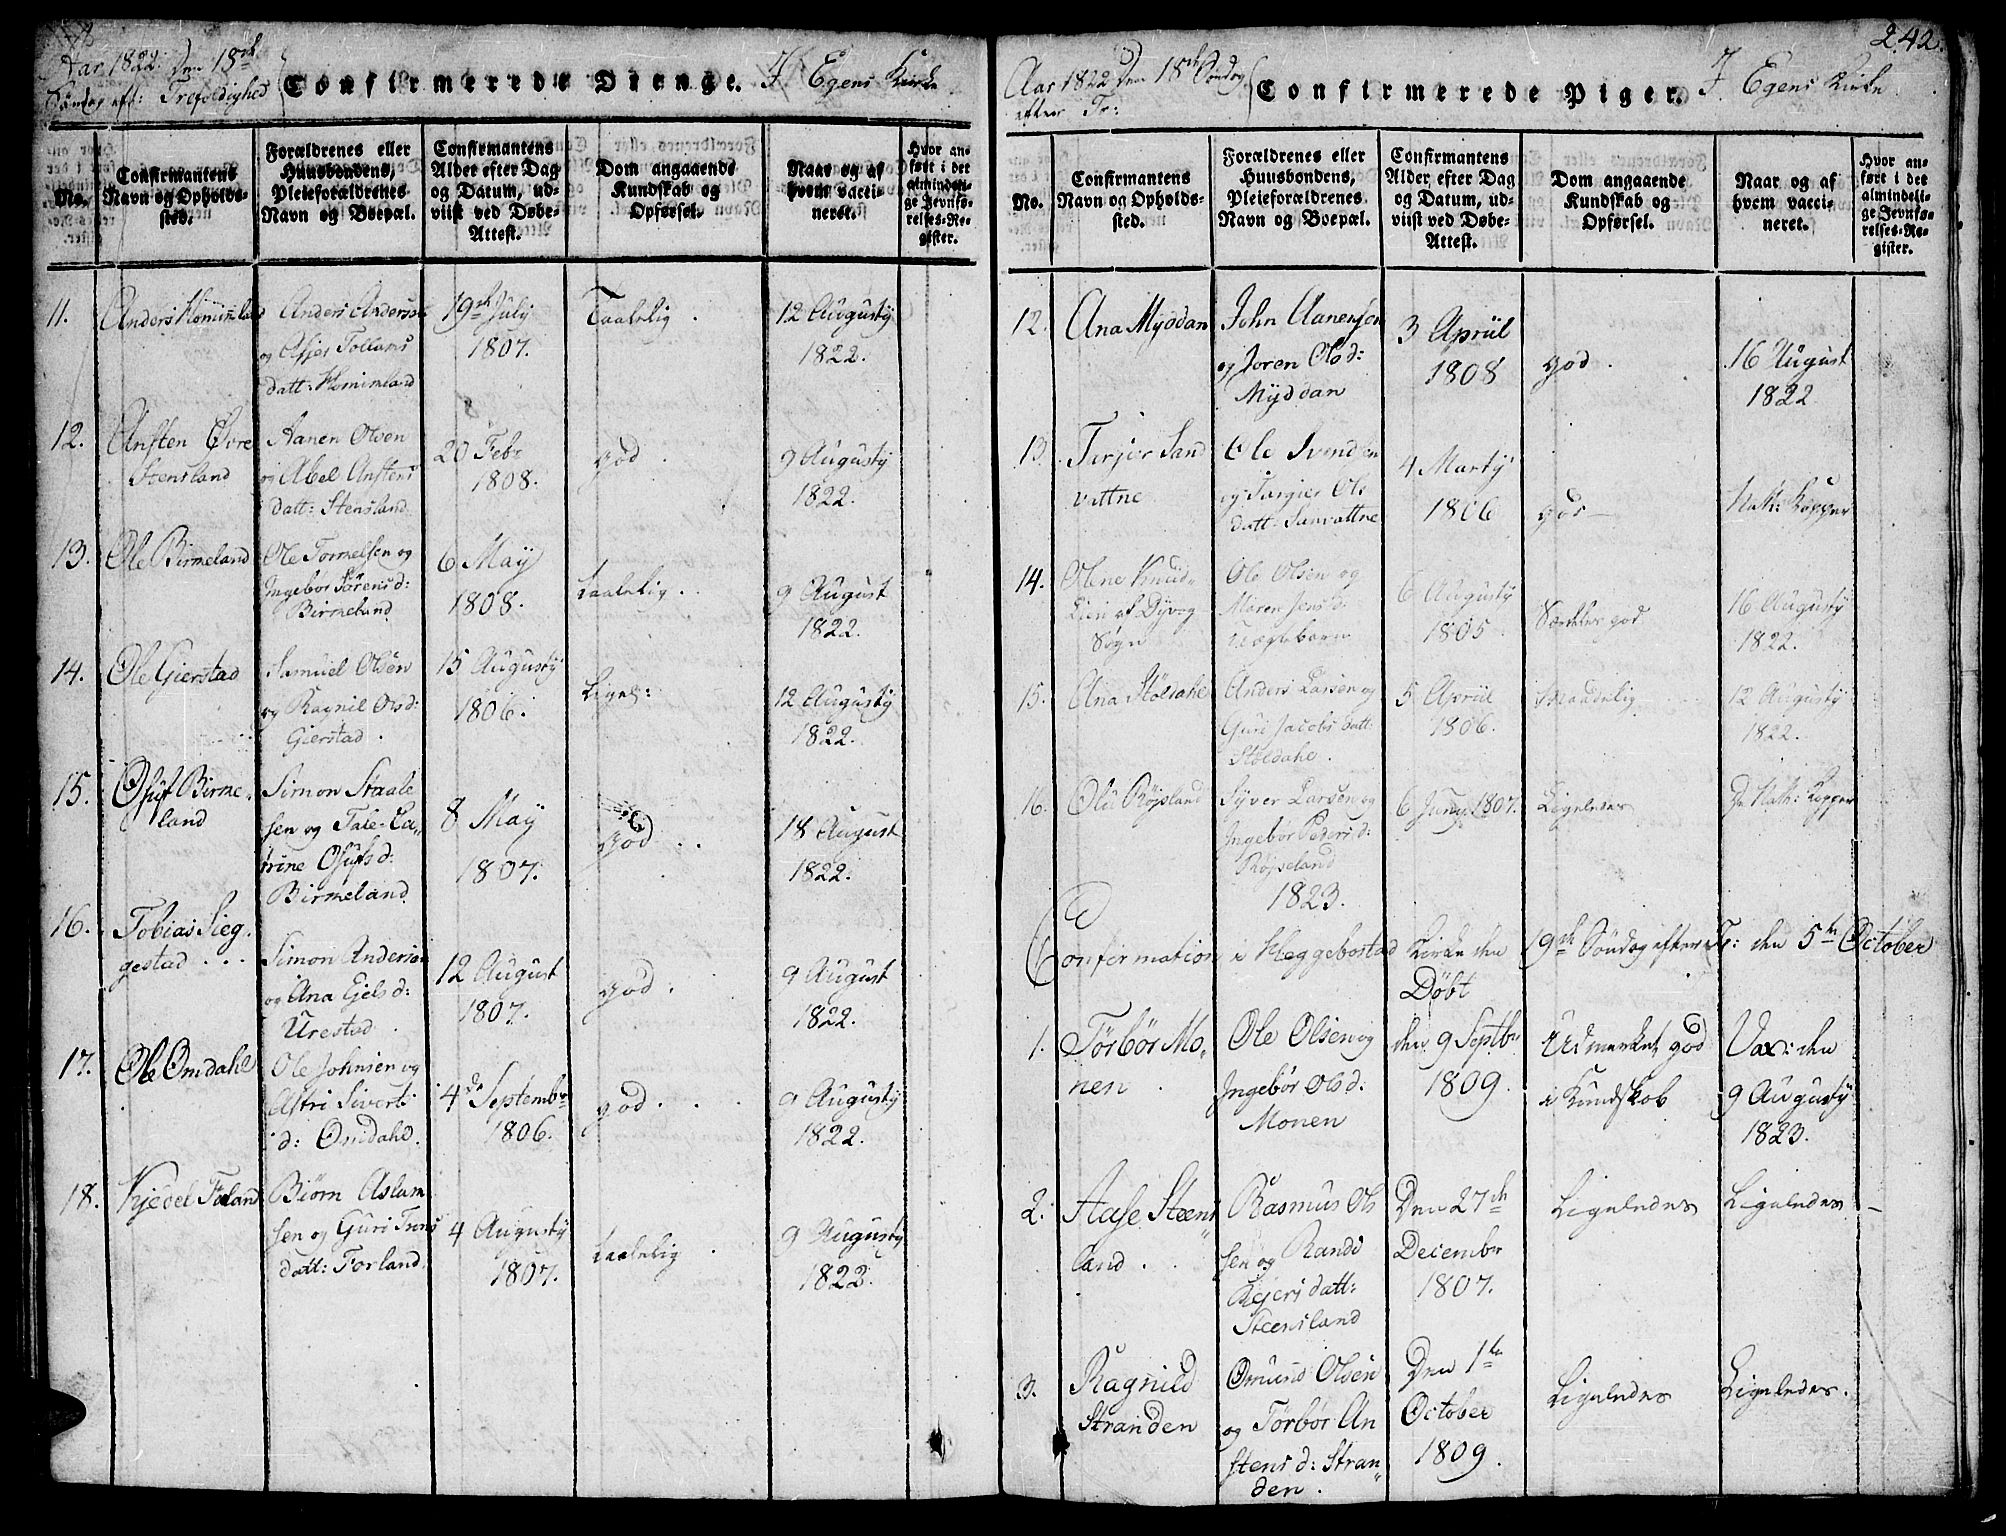 Aar 1822 den 18de
Søndag eft: Trefoldighed
Confirmerede Drenge. I Egens Kirke
No.
Confirmantens Navn og Opholds-
sted.
Forældrenes eller
Huusbondens,
Pleieforældrenes
Navn og Boepæl.
Confirmantens
Alder efter Dag
og Datum, ud-
viist ved Døbe-
Attest.
Dom angaaende
Kundskab og
Opførsel.
Naar og af
hvem vacci-
neret.
Hvor an-
ført i det
almindeli-
ge Jevnfø-
relses-Re-
gister.
11. Anders Homimland
Anders Anders
og Asjer Tollams
datt: Homimland
19de July
1807.
Taalelig.
12 Augusty
1822.
12. Ansten Øvre
Stensland
Aanen Olsen
og Abel Anstens
datt: Stensland
20 Febr
1808.
god.
9 Augusty
1822.
13. Ole Birmeland
Ole Tormelsen og
Ingebor Sørensd:
Birmeland
6 May
1808.
taalelig.
9 August
1822.
14. Ole Gierstad
Samuel Olsen
og Ragnil Olsd:
Gierstad.
15 Augusty
1806.
Ligel:
12 Augusty
1822.
15. Osuf Birme-
land
Simon Staale
sen og Tale Ca-
trine Osufsd:
Birmeland
8 May
1807.
god.
18 August
1822.
16. Tobias Sieg-
gestad
Simon Anderse
og Ana Ejelsd:
Urestad.
12 August
1807.
god.
9 August
1822.
17. Ole Omdahl
Ole Johnsen og
Astri Siverts
d: Omdahl.
4de Septembr
1806.
god.
9 Augusty
1822.
18. Kjedel Foland
Biørn Aslam
sen og Guri Trons
datt: Forland.
4 Augusty
1807.
taalelig.
9 Augusty
1822.
242.
Aar 1822 den 18de Søndag
efter Tr:
Confirmerede Piger. I Egens Kirke
No.
Confirmantens
Navn og Opholds-
sted.
Forældrenes eller
Huusbondens,
Pleieforældrenes
Navn og Boepæl.
Confirmantens
Alder efter Dag
og Datum, ud-
viist ved Døbe-
Attest.
Dom angaaende
Kundskab og
Opførsel.
Naar og af
hvem vacci-
neret.
Hvor an-
ført i det
almindeli-
ge Jevnfø-
relses-Re-
gister.
12. Ana Myddan
John Aanensen
og Joren Olsd:
Myddan
3 Apriil
1808
god.
16 August
1822
13. Terjer Sand
vattne
Ole Svendsen
og Targier Ols
datt: Sanvattne
4 Marty
1806
god
Nath: Kopper
14. Olene Knud-
Lien af Dyvog
Søgn
Ole Olsen og
Maren Jensd:
6 Augusty
1805
Særdeles god
16 Augusty
1822.
15. Ana Støldahl
Anders Larsen og
Guri Jacobs datt:
Støldahl.
5 Apriil
1806.
Maadelig
12 Augusty
1822.
16. Oli Røjsland
Syver Larsen og
Ingebør Pedersd:
Røjseland
6 Juny 1807.
Ligeledes
De Nath: Kopper
1823.
Confirmation i Heggebostad Kirke den 19de Søndag efter Tr: den 5te October
Døbt
1. Tørbør Mo-
nen
Ole Olsen og
Ingebør Olsd:
Monen
den 9 Septbr
1809.
Udmerket god
i Kundskob
Vax: den
9 Augusty
1823.
2. Aase Steens
land.
Rasmus Ols
sen og Randi
Rejers datt:
Steensland
Den 27de
December
1807.
Ligeledes
Ligeledes
3. Ragnild
Stranden
Omund Olsen
og Tørbør An
stens d: Stran-
den.
Den 1te
October
1809.
Ligeledes
Ligeledes.